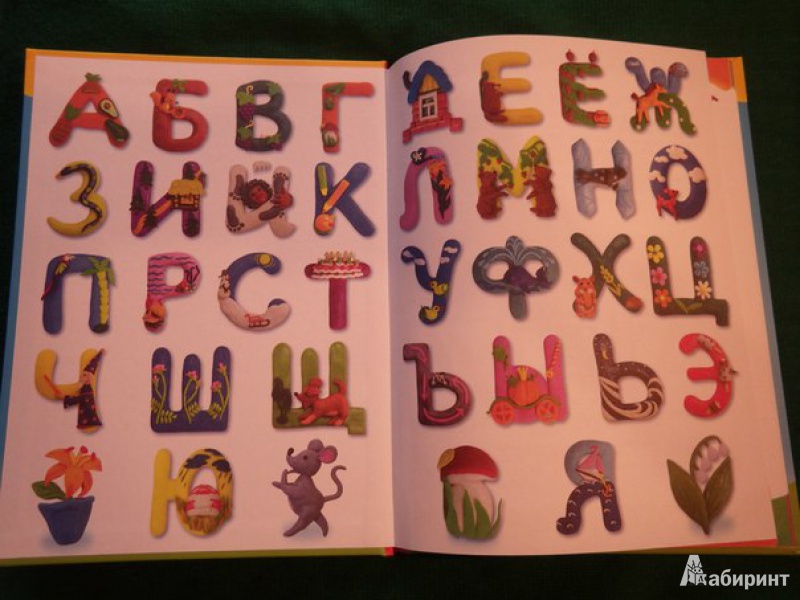 А Б В Г Д Е Ё Ж
З И Й К Л М Н О
П Р С Т У Ф Х Ц
Ч Ш Щ Ъ Ы Ь Э
Ю Я
Лабиринт